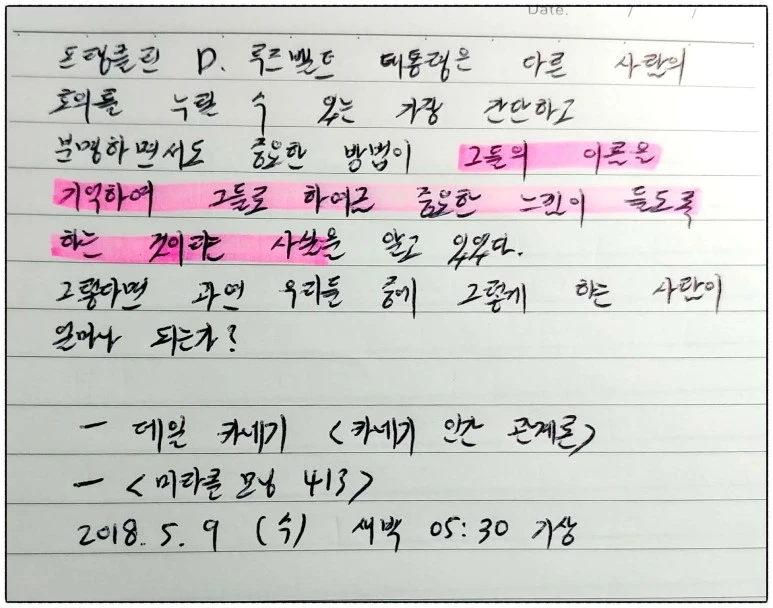 Date. / /
프랭클린 D. 루즈벨트 대통령은 다른 사람의
호의를 누릴 수 있는 가장 간단하고
분명하면서도 중요한 방법이 그들의 이름을
기억하여 그들로 하여금 중요한 느낌이 들도록
하는 것이라는 사실을 알고 있었다.
그렇다면 과연 우리들 중에 그렇게 하는 사람이
얼마나 되는가?
- 데일 카네기 <카네기 인간 관계론>
- <미라클 모닝 413>
2018. 5. 9 (수) 새벽 05:30 기상